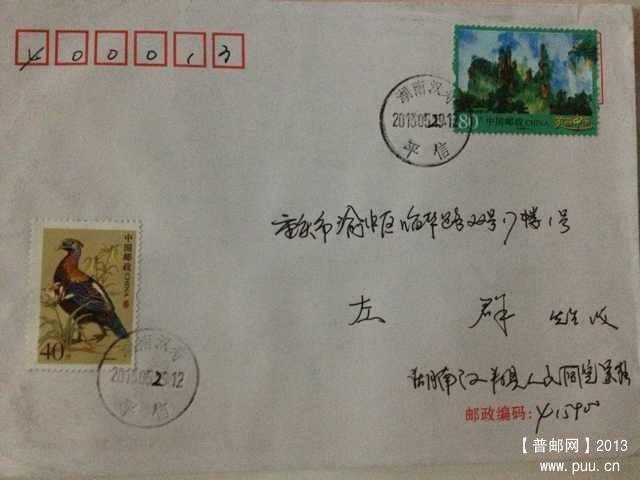 400013
湖南汉寿
2013.05.29.12
平信
80 中国邮政 CHINA
重庆市渝中区临华路22号17楼1号
左 群 先生 收
中国邮政 CHINA
40
湖南汉寿
2013.05.29.12
平信
湖南汉寿县人民
邮政编码:415900
【普邮网】2013
www.puu.cn